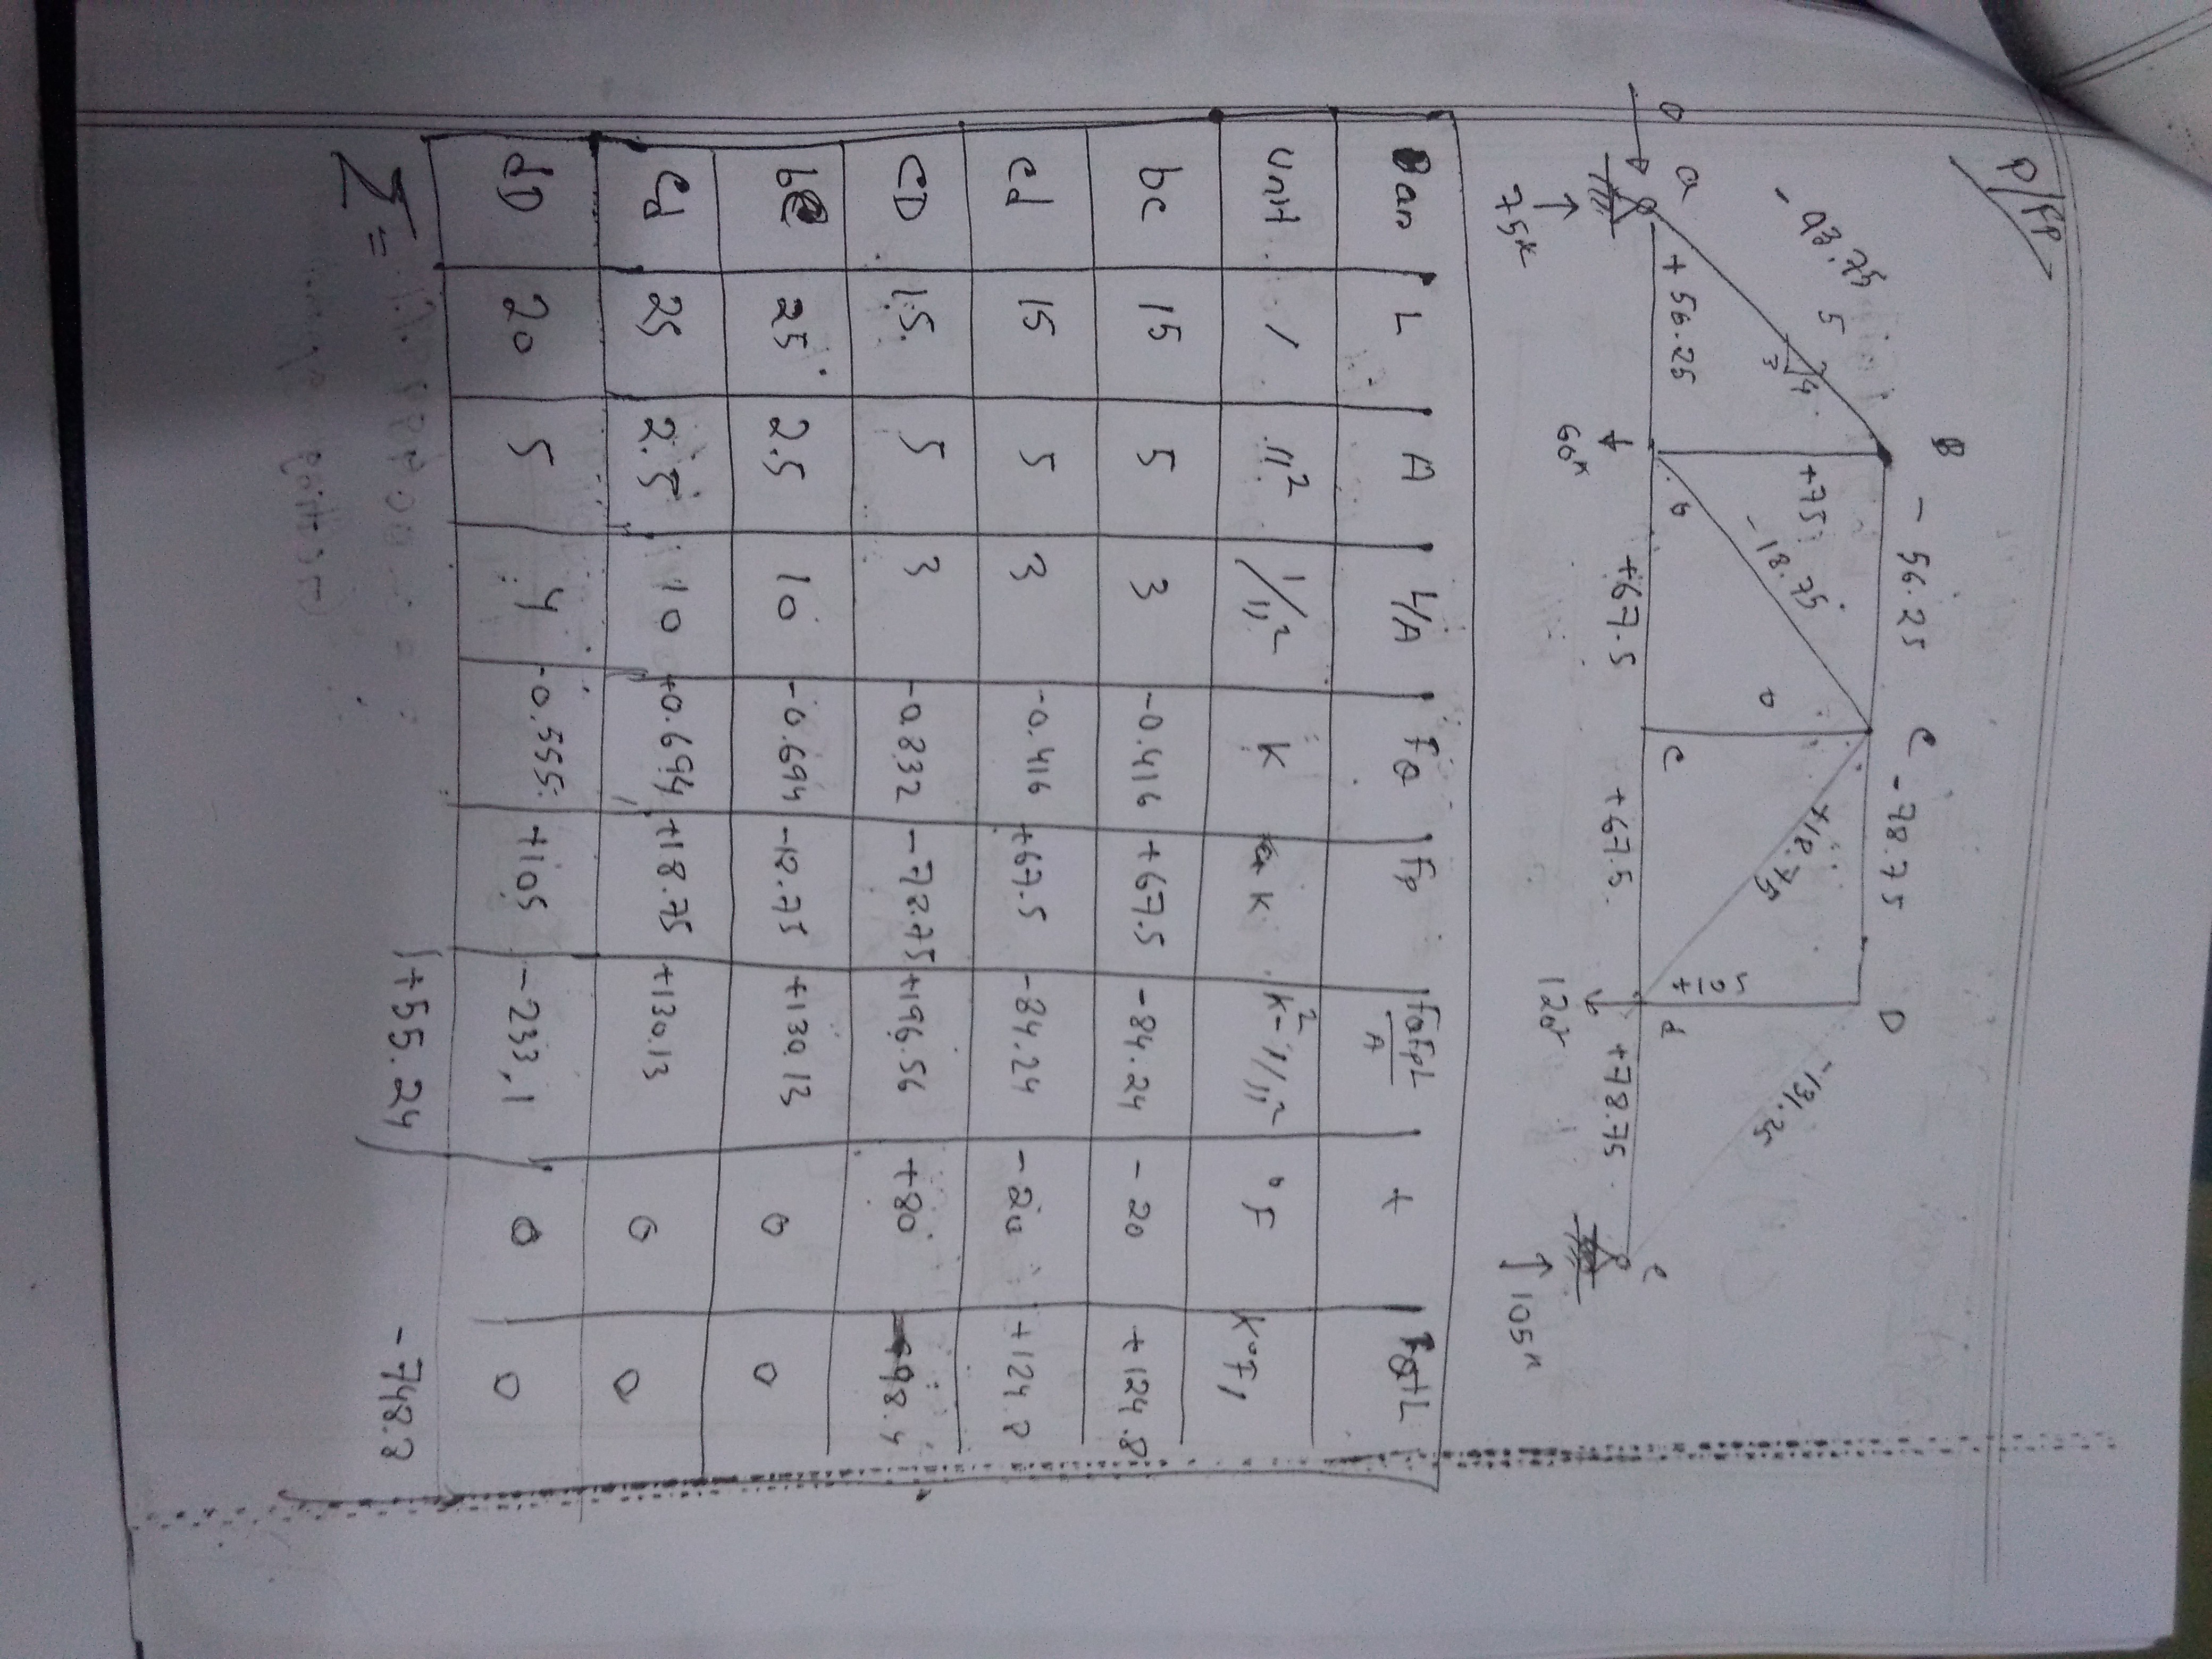 P/Fp
B - 56.25 C -78.75 D
- 93.75
5 4 3
+75
-18.75
0
+18.75
+105
-131.25
0 a + 56.25 b +67.5 c +67.5 d +78.75 e
75k 60k 120k 105k
Bar L A L/A FQ Fp FQFpL/A t FQtL
Unit ' "² '/"² K K K²-'/"² °F K°F'
bc 15 5 3 -0.416 +67.5 -84.24 -20 +124.8
cd 15 5 3 -0.416 +67.5 -84.24 -20 +124.8
CD 15 5 3 -0.832 -78.75 +196.56 +80 -998.4
bC 25 2.5 10 -0.694 -18.75 +130.13 0 0
Cd 25 2.5 10 +0.694 +18.75 +130.13 0 0
dD 20 5 4 -0.555 +105 -233.1 0 0
Σ= +55.24 -748.8